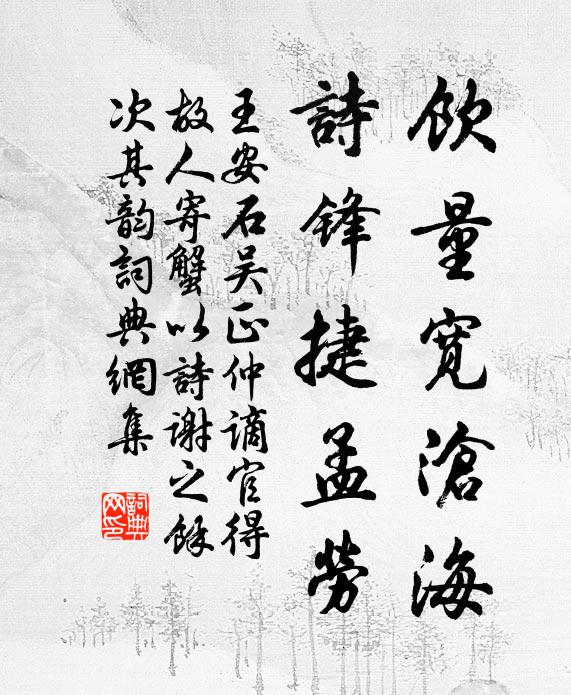 飲量寬滄海
詩鋒捷孟勞
王安石吴正仲谪官得
故人寄蟹以詩謝之餘
次其韵詞典網集
詞典網印